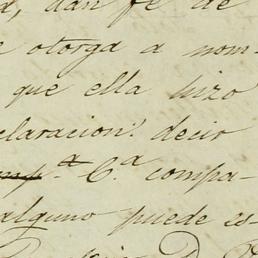 dan fe de
otorga a nom-
que ella hizo
claracion! decir
C.ª compa-
alguno puede es-